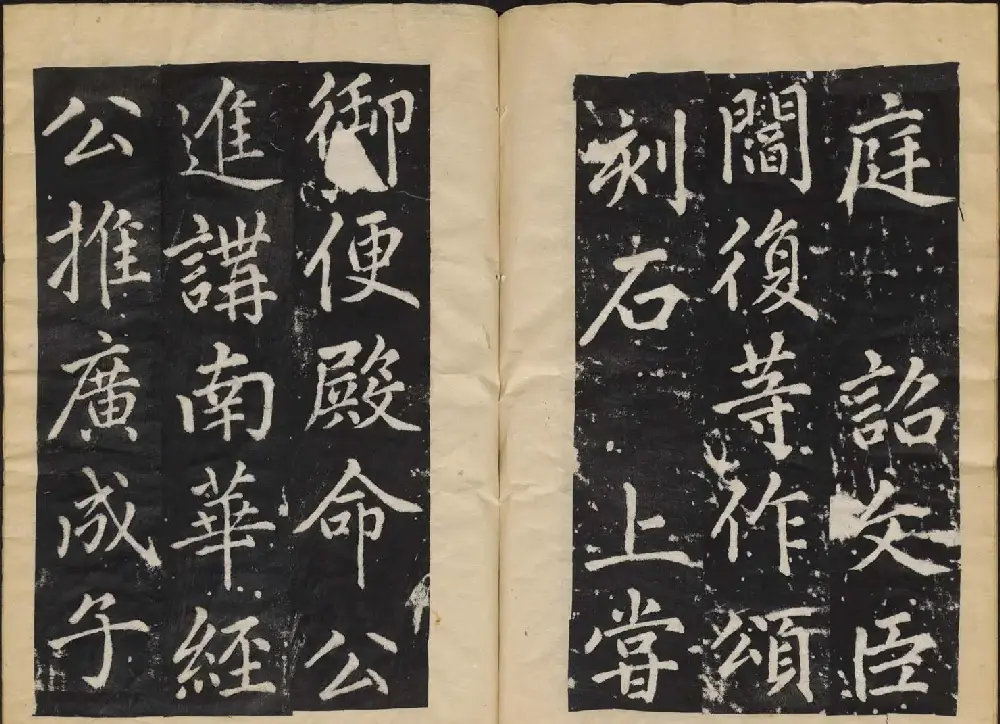 庭詔文臣
閻復等作頌
刻石上甞
御便殿命公
進講南華經
公推廣成子